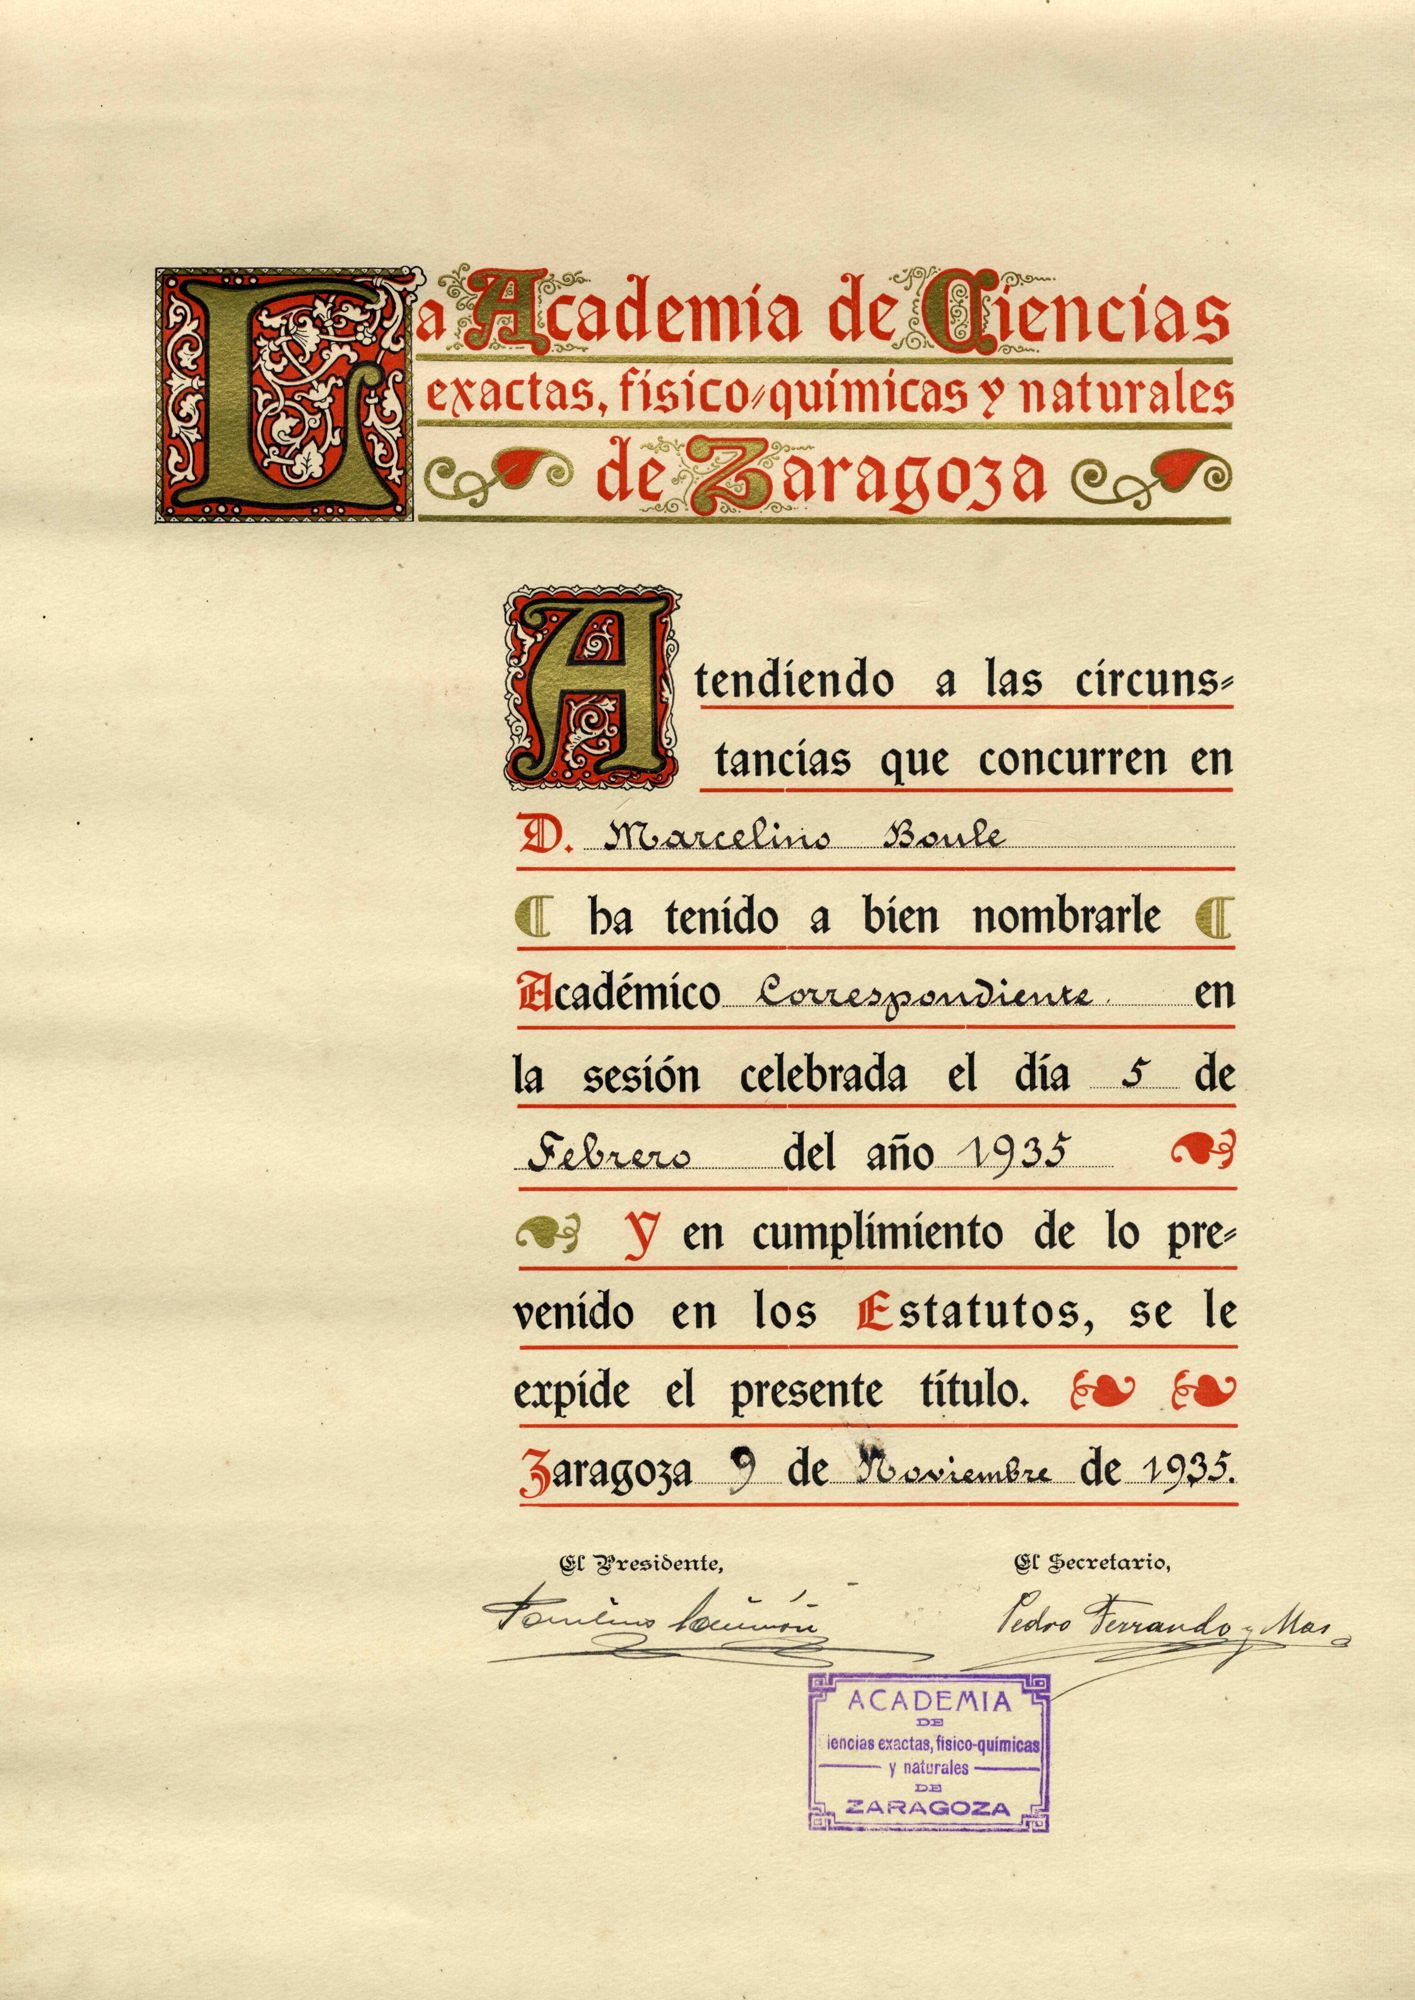 La Academia de Ciencias
exactas, físico-químicas y naturales
de Zaragoza
Atendiendo a las circuns-
tancias que concurren en
D. Marcelino Boule
ha tenido a bien nombrarle
Académico Correspondiente. en
la sesión celebrada el día 5 de
Febrero del año 1935
Y en cumplimiento de lo pre-
venido en los Estatutos, se le
expide el presente título.
Zaragoza 9 de Noviembre de 1935.
El Presidente,
El Secretario,
Pedro Ferrando y Mas
ACADEMIA
DE
iencias exactas, físico-químicas
y naturales
DE
ZARAGOZA